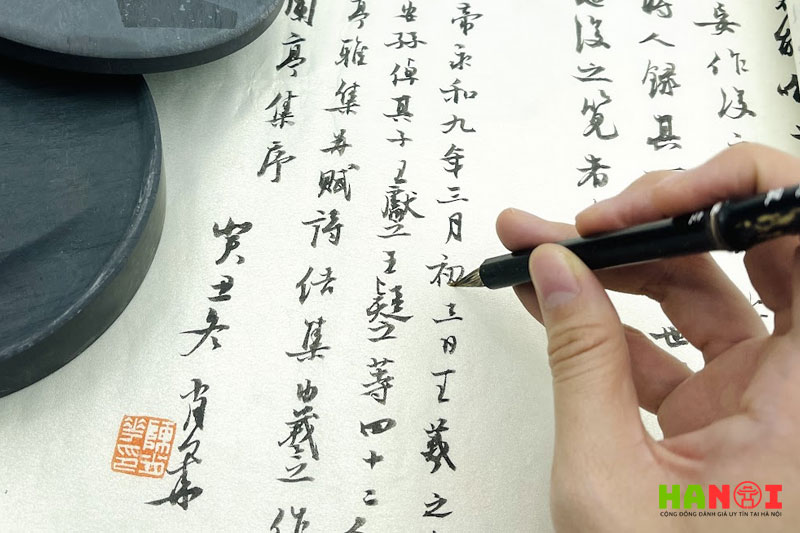 妄作後
時人錄其
世
後之覽者
帝永和九年三月初三日王羲之
安孫綽其子王獻之王凝之等四十二人
亭雅集并賦詩结集由羲之作
蘭亭集序
癸丑冬
HANOI
CỘNG ĐỒNG ĐÁNH GIÁ UY TÍN TẠI HÀ NỘI